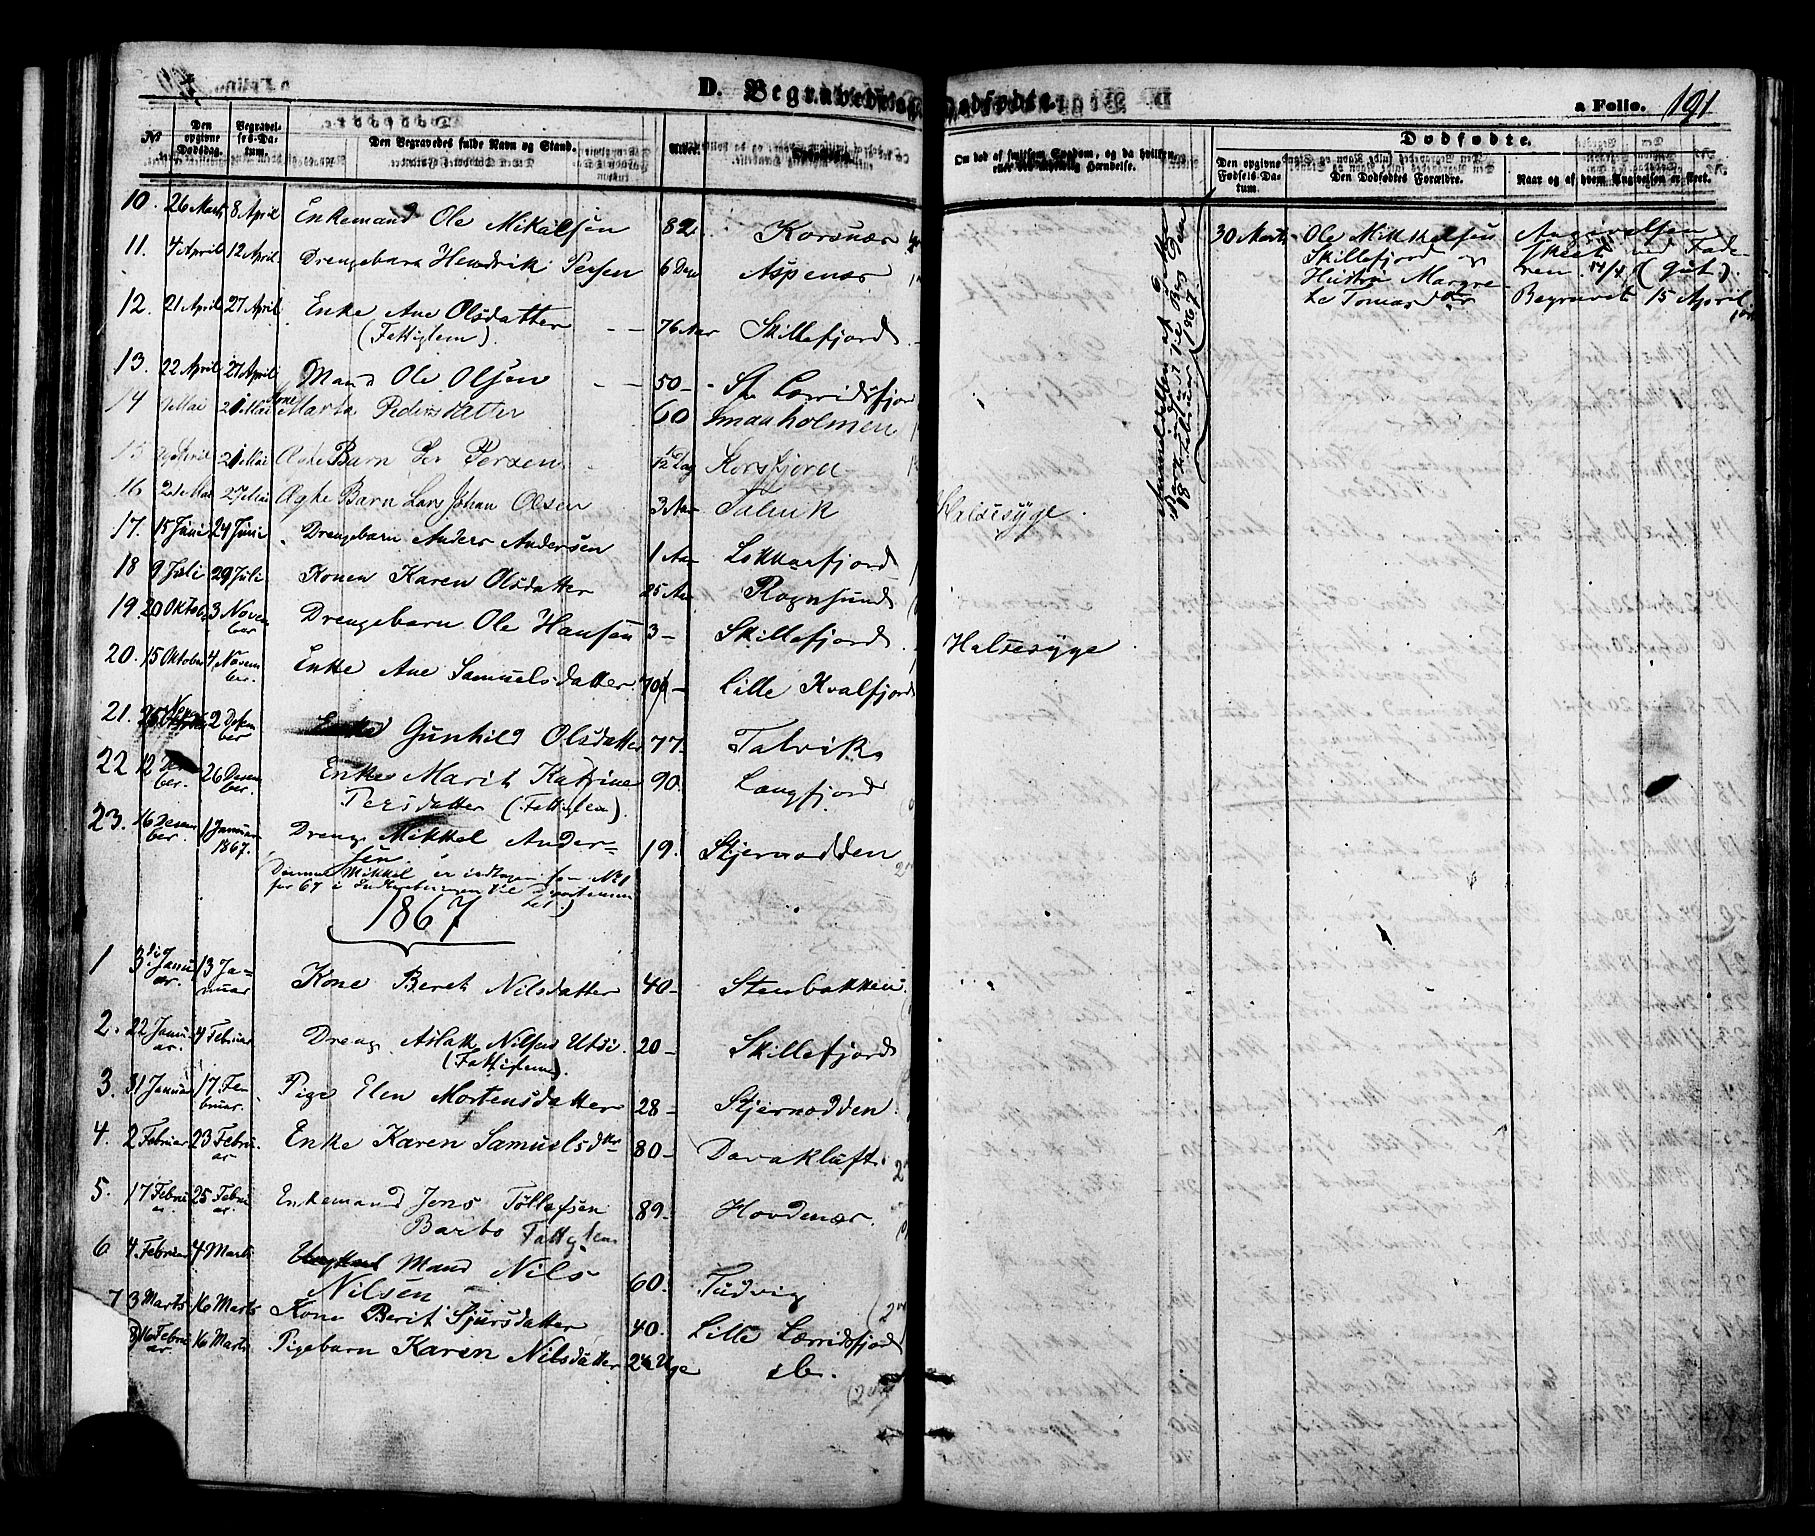 D. Begravede og Dødfødte.
a Folio. 191
No Den opgivne Dødsdag. Begravelses-Datum. Den Begravedes fulde Navn og Stand. Alder.
Om død af smitsom Sygdom, og da hvilken,
Dødfødte.
Den opgivne Fødsels-Datum. Den Dødfødtes Forældre. Naar og af hvem Angivelsen er skeet.
10. 26 Marts 8 April Enkemand Ole Mikalsen 82 Korsnær
11. 4 April 12 April Drengebarn Hendrik Persen 6 Dage Aspenær
12. 21 April 27 April Enke Ane Olsdatter (Fattiglem) 76 Aar Skillefjord
13. 22 April 27 April Mand Ole Olsen 50 - St. Lerridsfjord
14 Mai 21 Mai Kone Marta Pedersdatter 60 Smaaholmen
15 April 21 Mai Ægte Barn Per Persen Korsfjord
16 2 Mai 27 Mai Ægte Barn Lars Johan Olsen 3 Aar Talvik Halsesyge.
17. 15 Juni 24 Juni Drengebarn Anders Andersen 1 Aar Lokkarfjord
18 9 Juli 29 Juli Konen Karen Olsdatter 25 Aar Rognsund
19. 20 Oktob 3 November Drengebarn Ole Hansen 3 - Skillefjord Halsesyge
20. 15 Oktober 4 November Enke Ane Samuelsdatter 70 - Lille Kvalfjord
21. 2 Desember Gunhild Olsdatter 77 - Talvik
22 12 Desember 26 Desember Enke Marit Katrine Persdatter (Fattiglem) 90. Langfjord
23. 16 Desember 1 Januar 1867. Dreng Mikkel Andersen. 19. Stjernodden
Denne Mikkel er indtagen som No 1
for 67 i Indberetningen til Departementet.)
1867
1 3die Januar 13 Januar Kone Beret Nilsdatter 40 - Stenbakken
2. 22 Januar. 4 Februar Dreng Aslak Nilsen Utsi (Fattiglem). 20 - Skillefjord
3. 31 Januar 17 Februar. Pige Elen Mortensdatter 28 - Stjernodden
4. 2 Februar 23 Februar Enke Karen Samuelsdtr 80 - Davakluft
5. 17 Februar 25 Februar. Enkemand Jens Tollefsen Barbo Fattiglem 89 - Hovdenær.
6 4 Februar 4 Marts Mand Nils Nilsen 60. Tudvig
7 3 Marts 16 Marts Kone Berit Sjursdatter 40. Lille Lerridsfjord
16 Februar 16 Marts Pigebarn Karen Nilsdatter 24 Uge do.
30 Marts Ole Mikkelsen Skillefjord og Hustru Margrete Tomasdtr
Angivelsen skeet ved Faderen 14/4 (Gut).
Begravet 15 April